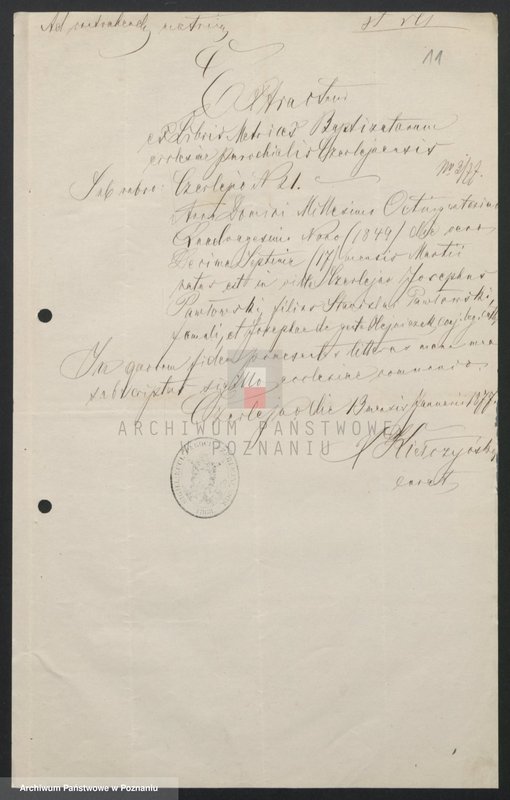 Ad contrahendum matrim
11
Extractum
ex Libris Metrices Baptizatorum
ecclesiae parochialis Czerlejnensis
No 3/77.
Sub robro: Czerlejno N 21.
Anno Domini Millesimo Octingentesimo
Quadragesimo Nono (1849) die vero
Decima Septima (17) mensis Martii
natus est in villa Czerlejno Josephus
Pawłowski, filius Stanislai Pawłowski,
famuli, et Josephae de
In quorum fidem praesentes litteras manu mea
subscriptas sigillo ecclesiae communio.
Czerlejno die 13 mensis Januarii 1877.
ARCHIWUM PAŃSTWOWE
W POZNANIU
X Kiełczyński
Archiwum Państwowe w Poznaniu